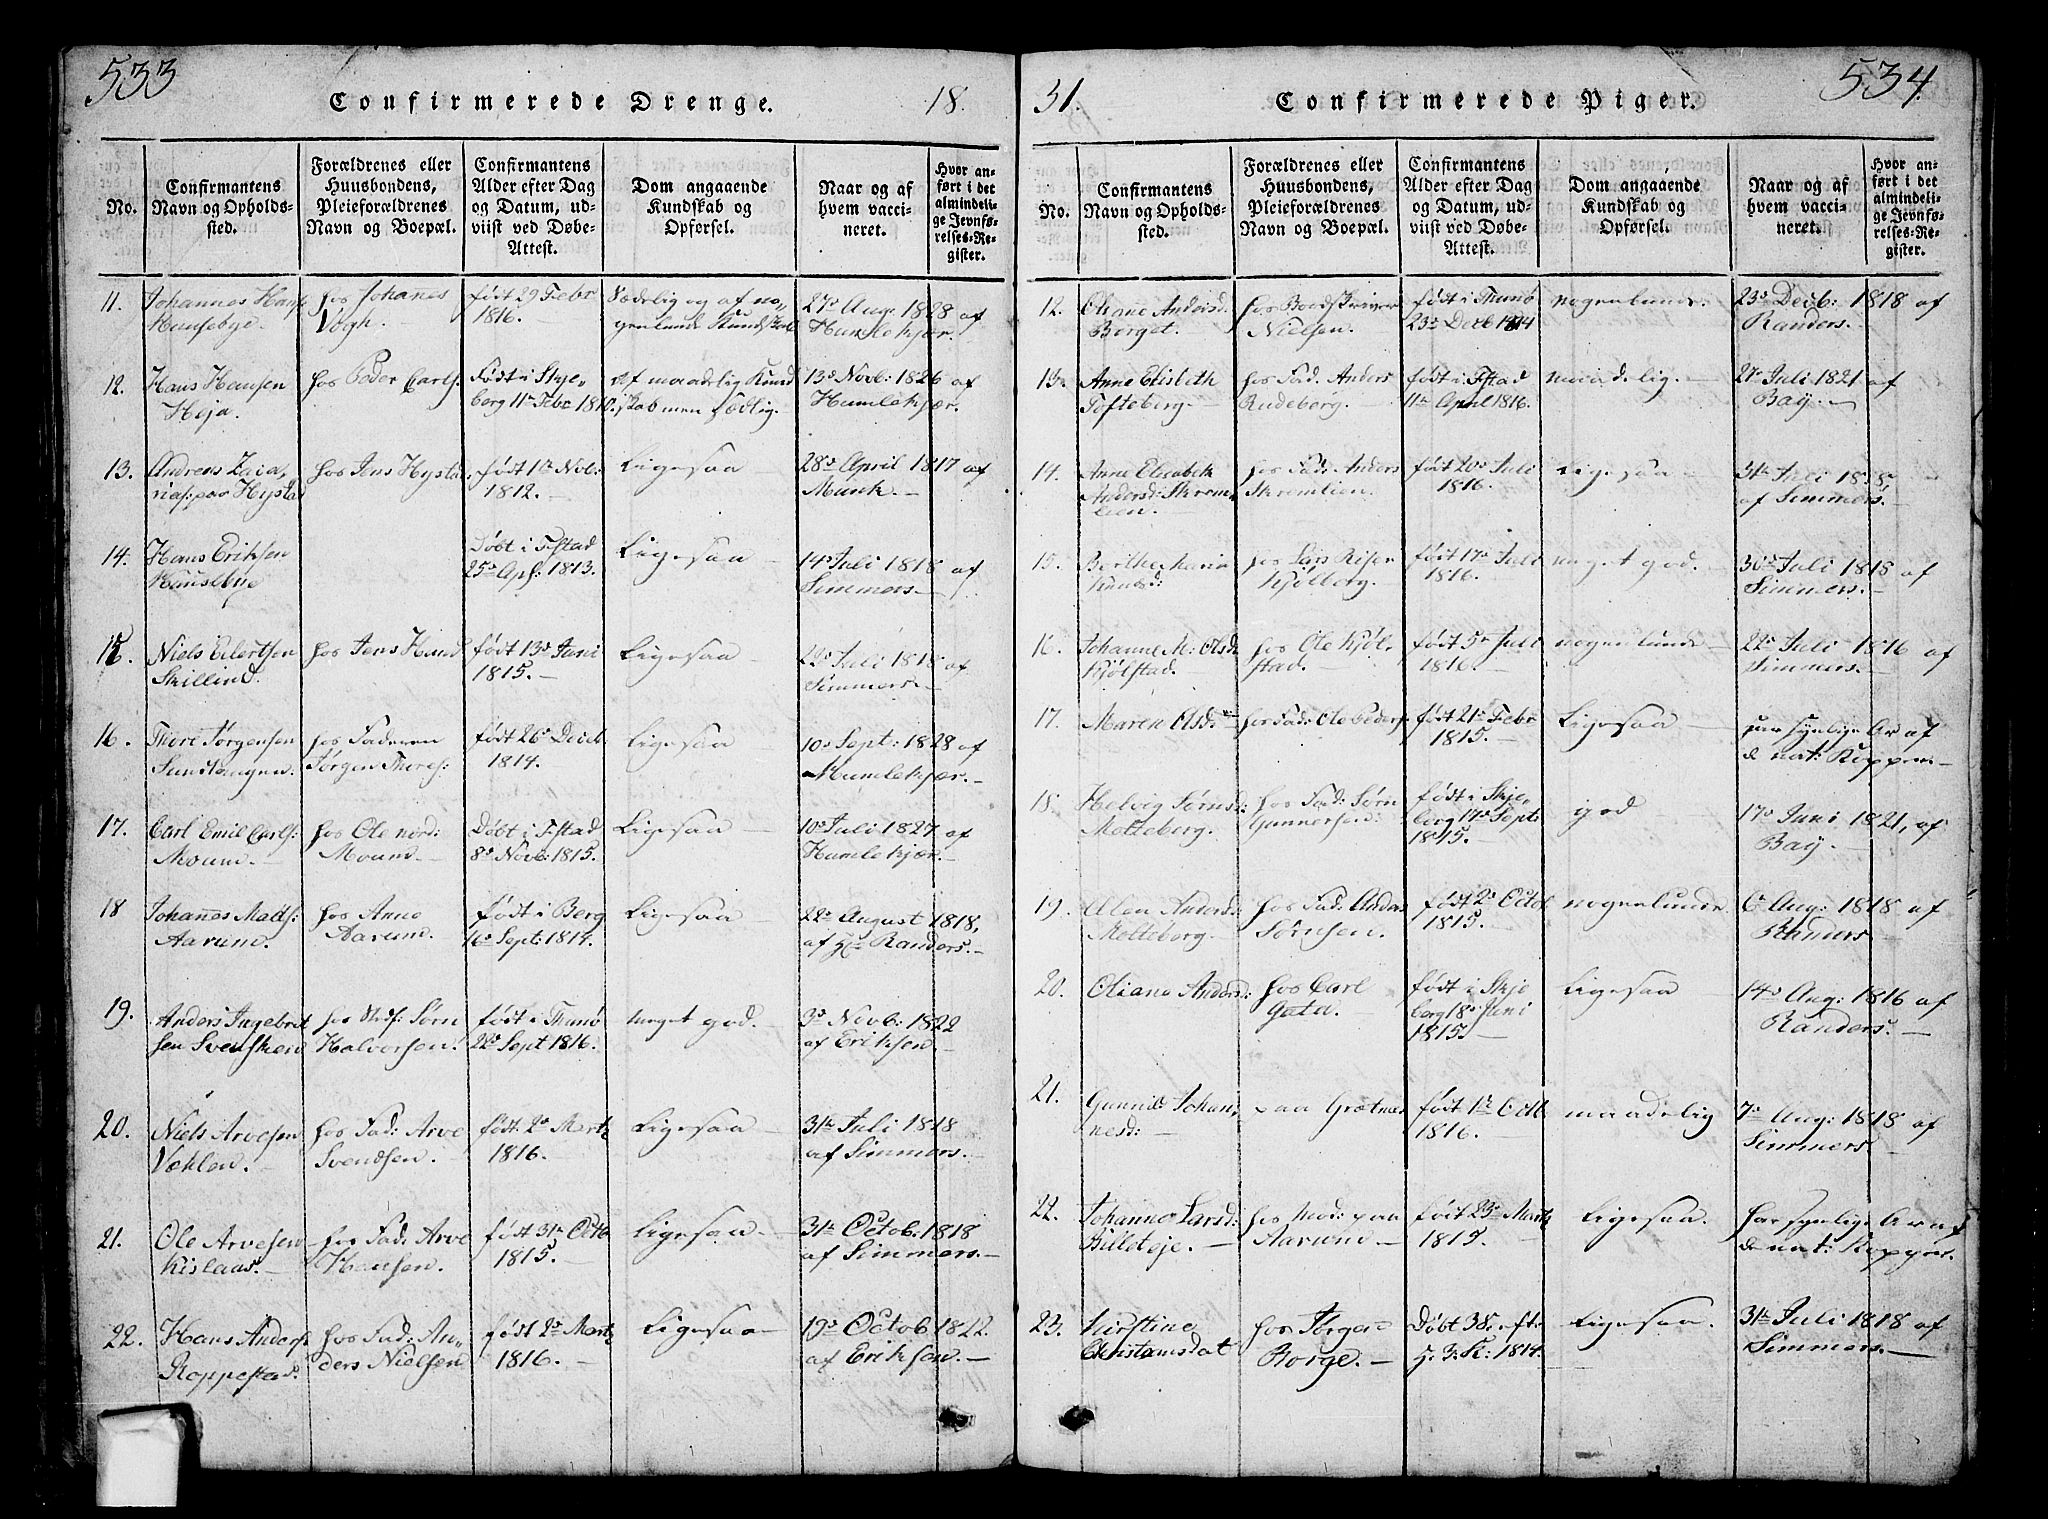 533
Confirmerede Drenge.
18.
No.
Confirmantens Navn og Opholds-sted.
Forældrenes eller Huusbondens, Pleieforældrenes Navn og Boepæl.
Confirmantens Alder efter Dag og Datum, ud-viist ved Døbe-Attest.
Dom angaaende Kundskab og Opførsel.
Naar og af hvem vacci-neret.
Hvor an-ført i det almindeli-ge Jevnfø-relses-Re-gister.
11. Johannes Hans
Hansebye.
hos Johanes
Vogh.
født 29 Febr
1816.
Sædelig og af no-
genlunde Kundskab
27de Aug: 1828 af
Humlekjær.
12. Hans Hansen
Heja.
hos Peder Carls:
Født i Skje-
berg 11te Febr
af maadelig Kund
skab men sædlig.
13de Novb: 1826 af
Humlekjær.
13. Andreas Zaia,
rias: paa Hystad
hos Jens Hystad
født 1te Nov:
1812.
Ligesaa
28de April 1817 af
Munk.
14. Hans Eriksen
Hansebye
Døbt i F:stad
25de Apr: 1813.
Ligesaa
14de Juli 1818 af
Simmers.
15. Niels Eilertsen
Skillind.
hos Jens Hund
født 13de Juni
1815.
Ligesaa
22de Juli 1818 af
Simmers.
16. Thore Jørgensen
Sundlangen.
hos Faderen
Jørgen Thores:
født 26de Decb.
1814.
Ligesaa
10de Sept: 1828 af
Humlekjær.
17. Carl Emil Carls:
Moum.
hos Ole nord:
Moum
Døbt i F:stad
8de Novb: 1815.
Ligesaa
10de Juli 1827 af
Humlekjær.
18 Johanes Matts:
Aarum.
hos Anne
Aarum.
født i Berg
16de Sept: 1814.
Ligesaa
22de August 1818,
af Hr. Randers.
19. Anders Ingebret
sen Svensken
hos Sørn
Halvorsen.
født i Thunø
22de Sept 1816.
meget god.
3de Novb: 1822
af Eriksen.
20. Niels Arvesen
Væhlen.
hos Fad: Arve
Svendsen.
født 2de Martz
1816.
Ligesaa
31te Juli 1818
af Simmers.
21. Ole Arvesen
Kislaas.
hos Fad: Arve
Hansen.
født 31te Octb
1815.
Ligesaa
31te Octob. 1818
af Simmers.
22. Hans Anders:
Roppestad.
hos Fad: An-
ders Nielsen
født 2de Martz
1816.
Ligesaa
19de Octob. 1822.
af Eriksen.
31.
Confirmerede Piger.
534.
No.
Confirmantens Navn og Opholds-sted.
Forældrenes eller Huusbondens, Pleieforældrenes Navn og Boepæl.
Confirmantens Alder efter Dag og Datum, ud-viist ved Døbe-Attest.
Dom angaaende Kundskab og Opførsel.
Naar og af hvem vacci-neret.
Hvor an-ført i det almindeli-ge Jevnfø-relses-Re-gister.
12. Oliane Andersd.
Borget.
hos Bordskriver
Nielsen.
født i Thunø
23de Decb 1814
nogenlunde.
23de Decb: 1818 af
Randers.
13. Anne Elisbeth
Tofteberg.
hos Fad. Anders
Rudeborg.
født i F:stad
11te April 1816.
maadelig.
21de Juli 1821 af
Bay.
14. Anne Elisabeth
Andersd: Skrem
lien.
hos Fad: Anders
Skremlien.
født 20de Juli
1816.
Ligesaa
31te Juli 1818,
af Simmers.
15. Berthe Karin
Knudsd:
hos Lars Riser
Kjølberg.
født 17de Juli
1816.
meget god.
30te Juli 1818 af
Simmers.
16. Johanne M: Olsd
Kjølstad.
hos Ole Kjøl-
stad.
født 5te Juli
1816.
nogenlunde
22de Juli 1816 af
Simmers.
17. Maren Olsd:
hos Fad: Ole Peders
født 21de Febr
1815.
Ligesaa
har synlige Ar af
de nat: Kopper.
18. Helvig Sørnsd:
Molteberg.
hos Fad: Sørn
Gunnersen:
født i Skje-
berg 17de Sept:
1815.
god
17de Juni 1821, af
Bay.
19. Alen Andersd:
Molteborg.
hos Fad: Anders
Sørnsen.
født 2de Octob
1815.
nogenlunde.
6te Aug: 1818 af
Randers
20. Oliane Andersd:
hos Carl
Gata.
født i Skje
berg 18de Juni
1815
Ligesaa
14de Aug: 1816 af
Randers.
21. Gunnild Johan
nesd:
paa Grøtnes
født 1te Octb
1816.
maadelig
7de Aug: 1818 af
Simmers.
22. Johanne Larsd:
Billeteje.
hos Mod: paa
Aarum
født 23de Martz
1815.
Ligesaa.
har synlige Ar af
de nat: Kopper.
23. Kirstine
Christiansdat
hos Torger
Borge.
Døbt 3 S. eft.
h: 3: K: 1814.
Ligesaa.
31te Juli 1818 af
Simmers.